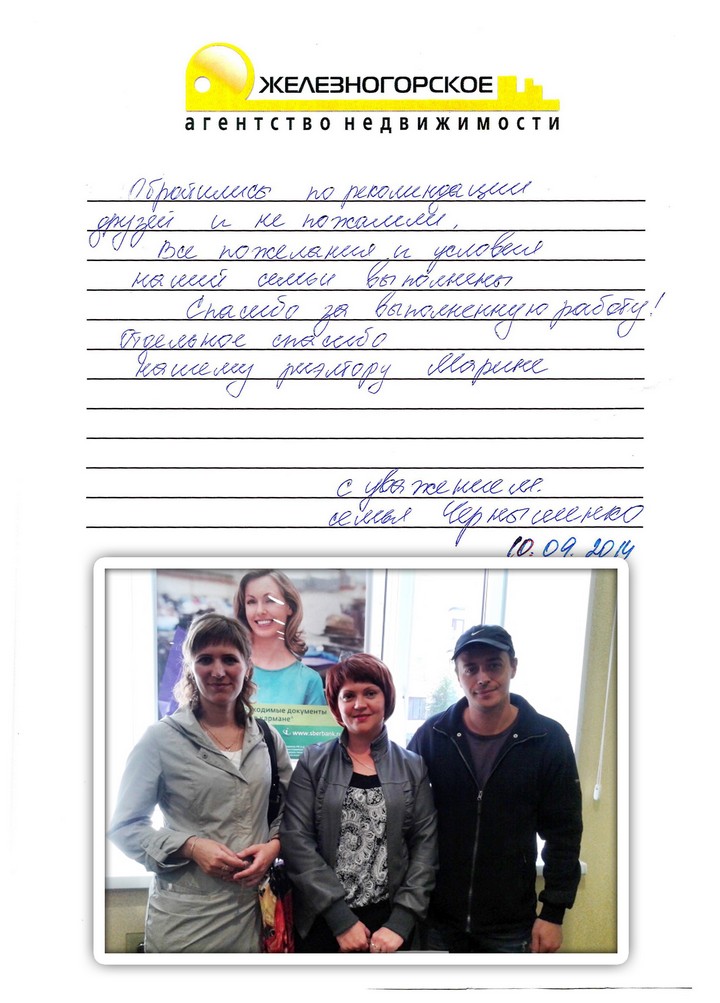 ЖЕЛЕЗНОГОРСКОЕ
агентство недвижимости
Обратились по рекомендации
друзей и не пожалели.
Все пожелания и условия
нашей семьи выполнены
Спасибо за выполненную работу!
Отдельное спасибо
нашему риэлтору Марине
с уважением.
семья Чернышенко
10.09.2014
ходимые документы
кармане
www.sberbank.r